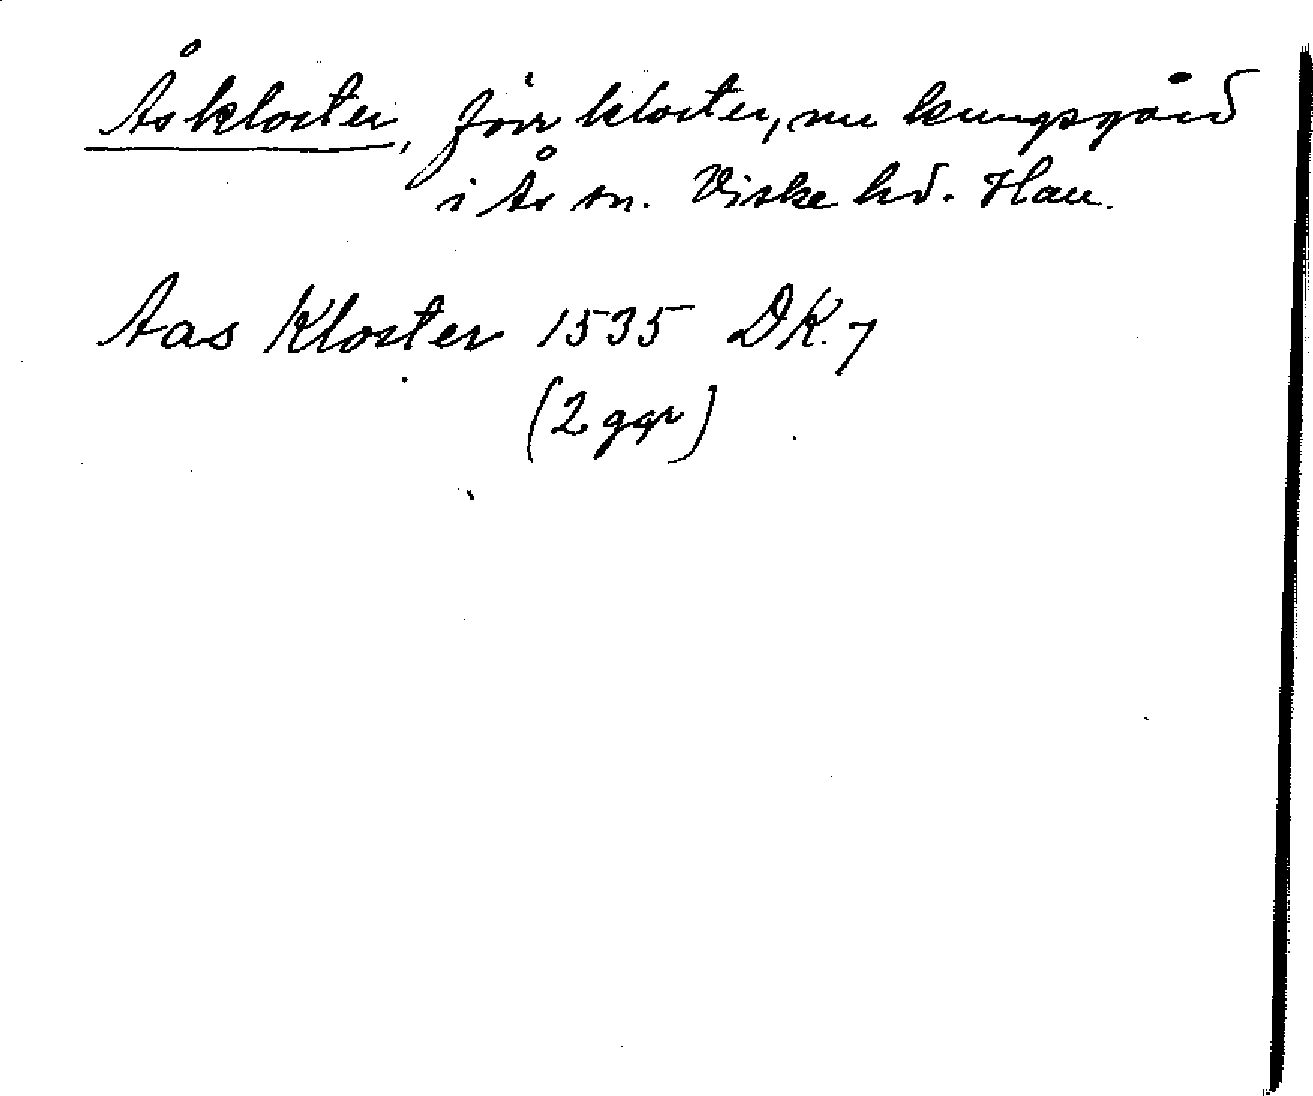 Åskloster, förr kloster, nu kungsgård
i Ås sn. Viske hd. Hall.
Aas Kloster 1535 DK. 7
(2 ggr)